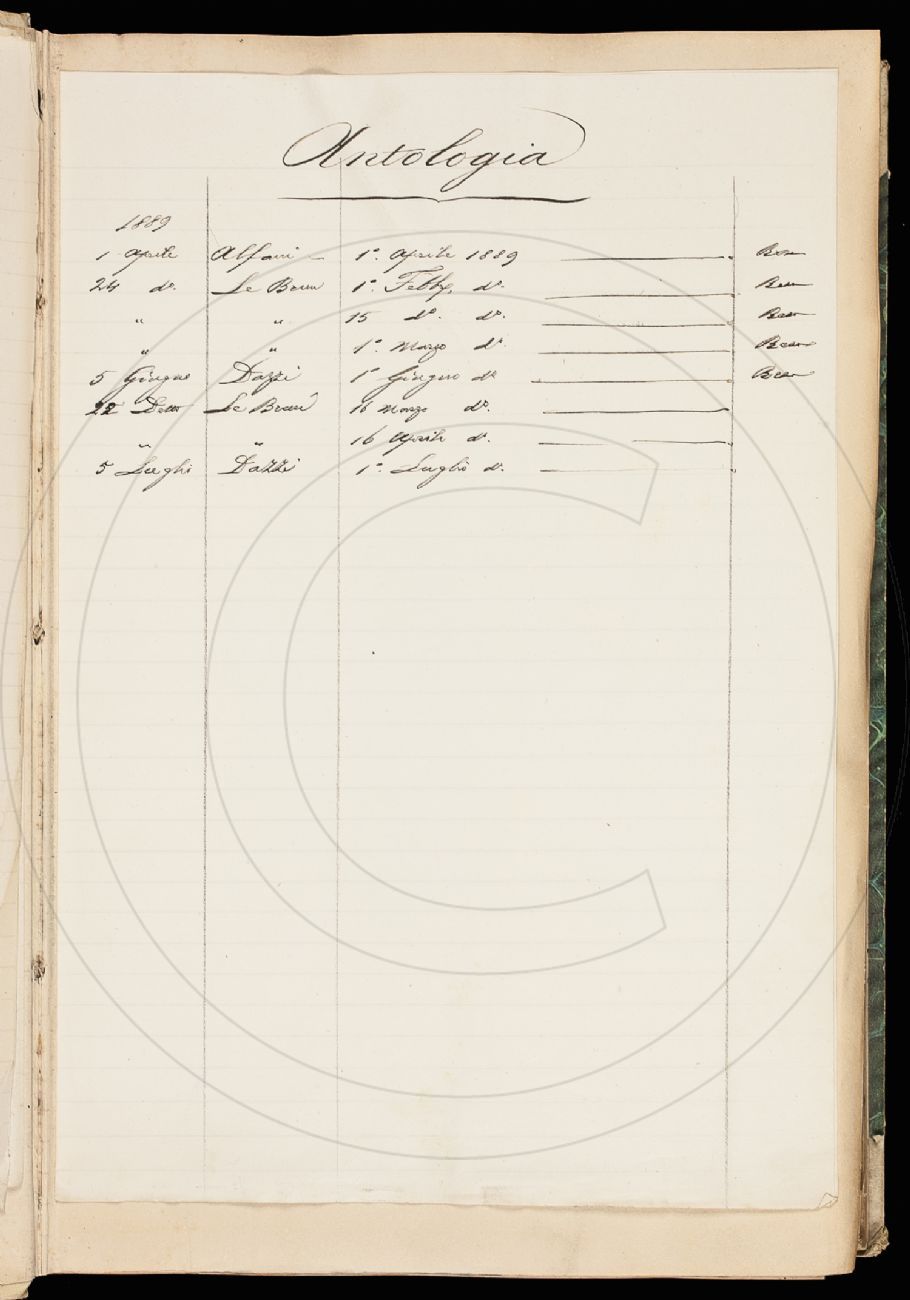 Antologia
1889
1 Aprile Alfani 1°. Aprile 1889
24 do. Le 1°. Febb. do.
" " 15 do. do.
" " 1°. Marzo do.
5 Giugno Dazzi 1° Giugno do
22 Detto Le 16 Marzo do.
" " 16 Aprile do.
5 Luglio Dazzi 1°. Luglio do.